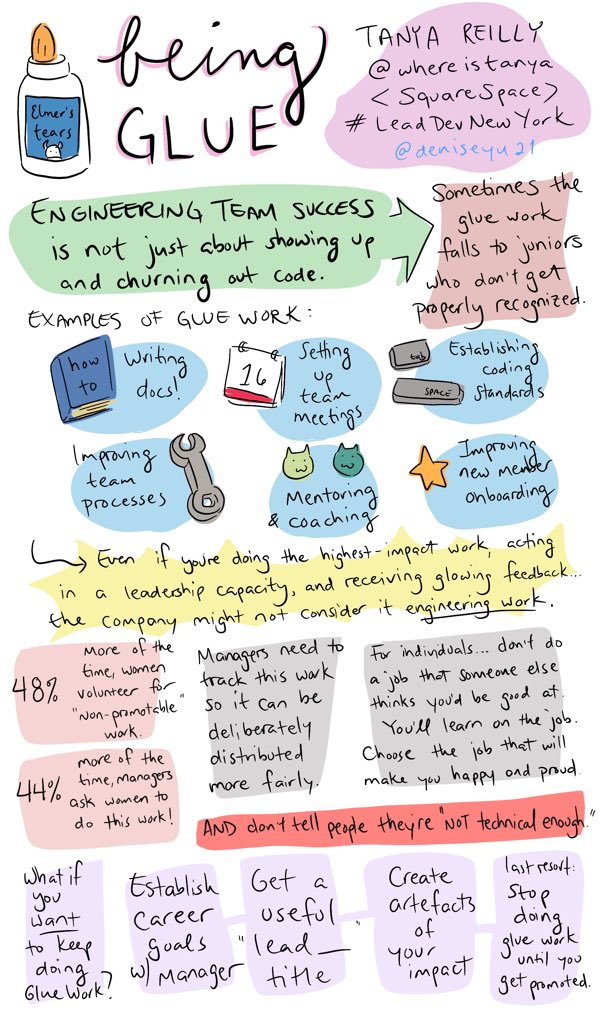 Elmer's
tears
being
GLUE
TANYA REILLY
@whereistanya
<SquareSpace>
#LeadDevNewYork
@deniseyu21
ENGINEERING TEAM SUCCESS
is not just about showing up
and churning out code.
Sometimes the
glue work
falls to juniors
who don't get
properly recognized.
EXAMPLES OF GLUE WORK:
how
to
Writing
docs!
16
Setting
up
team
meetings
tab
SPACE
Establishing
coding
standards
Improving
team
processes
Mentoring
& coaching
Improving
new member
onboarding
Even if you're doing the highest-impact work, acting
in a leadership capacity, and receiving glowing feedback...
the company might not consider it engineering work.
48%
more of the
time, women
volunteer for
"non-promotable"
work.
44%
more of the
time, managers
ask women to
do this work!
Managers need to
track this work
so it can be
deliberately
distributed
more fairly.
For individuals... don't do
a job that someone else
thinks you'd be good at.
You'll learn on the job.
Choose the job that will
make you happy and proud.
AND don't tell people they're "NOT technical enough."
What if
you
want
to keep
doing
Glue Work?
Establish
career
goals
w/ manager
Get a
useful
"lead __"
title
Create
artefacts
of
your
impact
last resort:
Stop
doing
glue work
until you
get promoted.